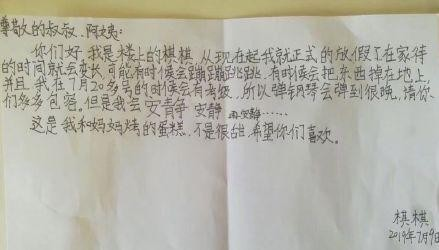 尊敬的叔叔、阿姨:
你们好,我是楼上的棋棋,从现在起我就正式的放假了在家待
的时间就会变长,可能有时候会蹦蹦跳跳,有时候会把东西掉在地上,
并且我在7月20多号的时候会考级,所以弹钢琴会弹到很晚,请你
们多多包容。但是我会安静 安静 再安静……
这是我和妈妈烤的蛋糕,不是很甜,希望你们喜欢。
棋棋
2019年7月9日